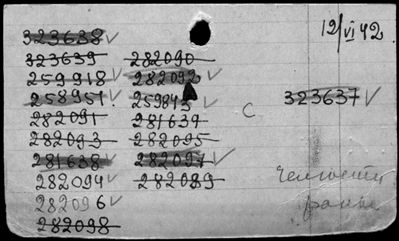 12/VI 42
323638
323639
259918
258951
282091
282093
281638
282094
282096
282098
282090
282092
259843
281639
282095
282097
282089
С
323637